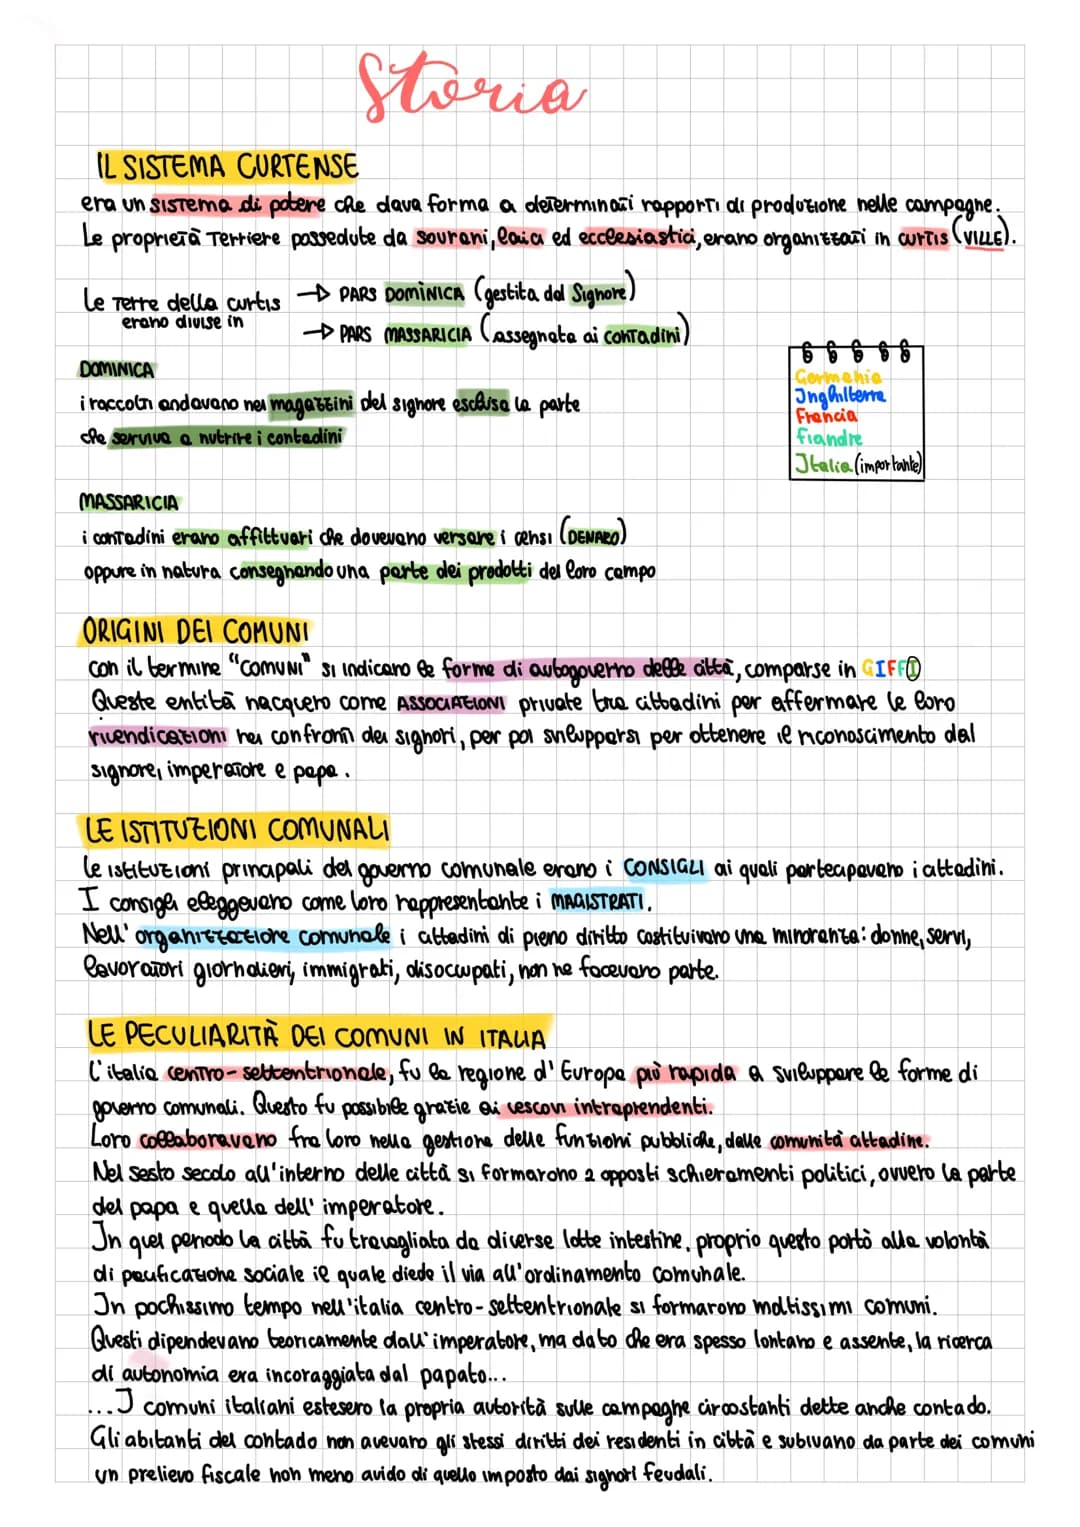 Storia
IL SISTEMA CURTENSE
era un sistema di potere che dava forma a determinati rapporti di produzione nelle campagne.
Le proprietà terriere possedute da sovrani, laici ed ecclesiastici, erano organizzati in curtis (VILLE).
Le terre della curtis → PARS DOMINICA (gestita dal Signore)
erano divise in → PARS MASSARICIA (assegnata ai contadini)
DOMINICA
i raccolti andavano nei magazzini del signore esclusa la parte
che serviva a nutrire i contadini
Germania
Inghilterra
Francia
fiandre
Italia (importante)
MASSARICIA
i contadini erano affittuari che dovevano versare i censi (DENARO)
oppure in natura consegnando una parte dei prodotti del loro campo
ORIGINI DEI COMUNI
con il termine "COMUNI" si indicano le forme di autogoverno delle città, comparse in GIFFI
Queste entità nacquero come ASSOCIAZIONI private tra cittadini per affermare le loro
rivendicazioni nei confronti dei signori, per poi svilupparsi per ottenere il riconoscimento dal
signore, imperatore e papa.
LE ISTITUZIONI COMUNALI
le istituzioni principali del governo comunale erano i CONSIGLI ai quali partecipavano i cittadini.
I consigli eleggevano come loro rappresentante i MAGISTRATI.
Nell' organizzazione comunale i cittadini di pieno diritto costituivano una minoranza: donne, servi,
lavoratori giornalieri, immigrati, disoccupati, non ne facevano parte.
LE PECULIARITÀ DEI COMUNI IN ITALIA
L'italia centro-settentrionale, fu la regione d' Europa più rapida a sviluppare le forme di
governo comunali. Questo fu possibile grazie ai vescovi intraprendenti.
Loro collaboravano fra loro nella gestione delle funzioni pubbliche, dalle comunità cittadine.
Nel sesto secolo all'interno delle città si formarono 2 opposti schieramenti politici, ovvero la parte
del papa e quella dell' imperatore.
In quel periodo la città fu travagliata da diverse lotte intestine, proprio questo portò alla volontà
di pacificazione sociale il quale diede il via all'ordinamento comunale.
In pochissimo tempo nell'italia centro-settentrionale si formarono moltissimi comuni.
Questi dipendevano teoricamente dall' imperatore, ma dato che era spesso lontano e assente, la ricerca
di autonomia era incoraggiata dal papato...
...I comuni italiani estesero la propria autorità sulle campagne circostanti dette anche contado.
Gli abitanti del contado non avevano gli stessi diritti dei residenti in città e subivano da parte dei comuni
un prelievo fiscale non meno avido di quello imposto dai signori feudali.